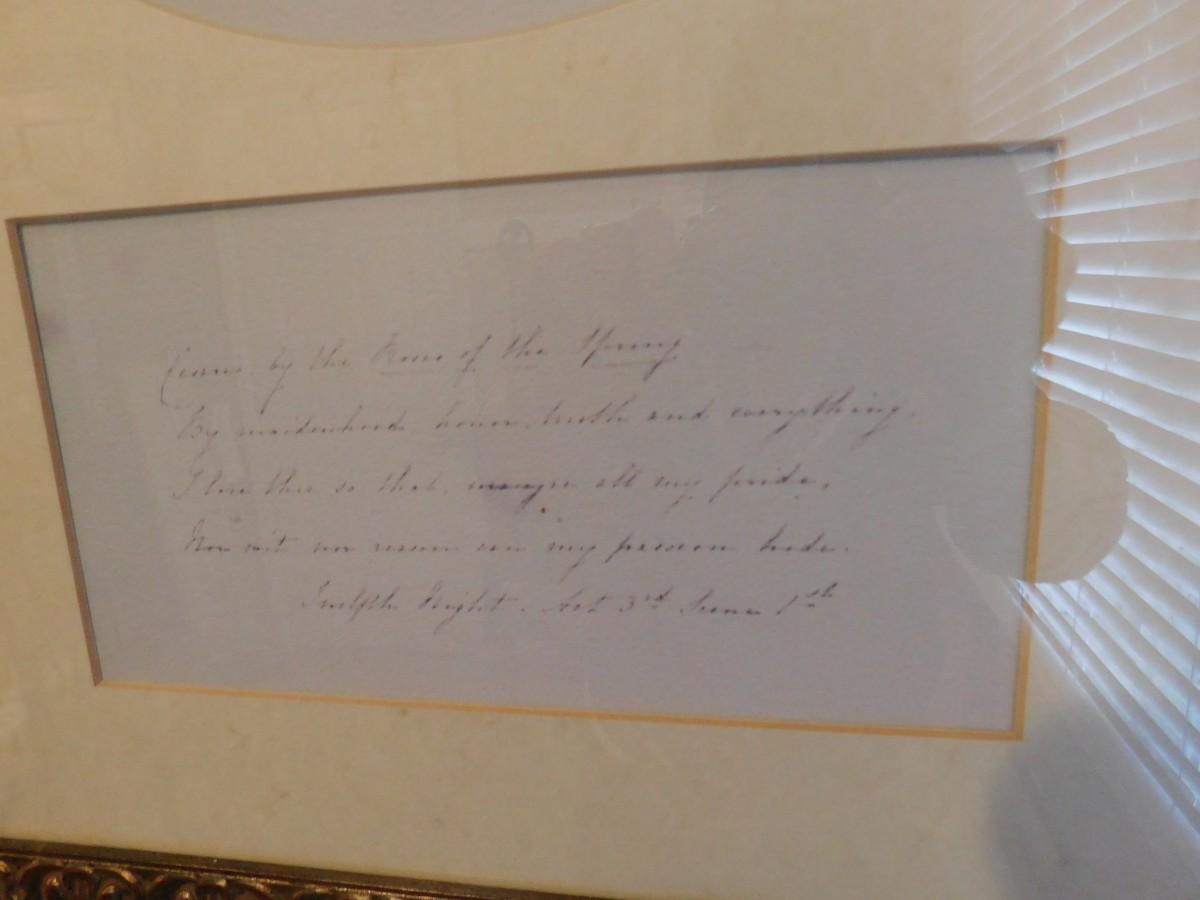 Cesario by the Roses of the Spring
By maidenhood, honor, truth and everything,
I love thee so that, maugre all my pride,
Nor wit nor reason can my passion hide.
Twelfth Night. Act 3rd Scene 1st